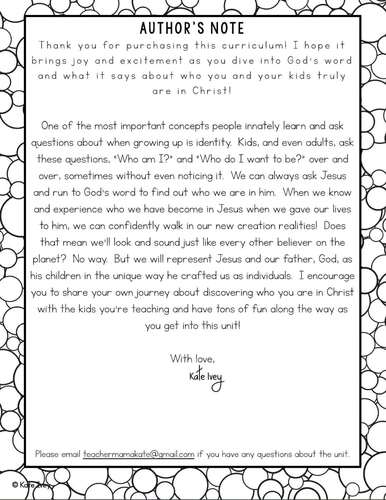 AUTHOR'S NOTE
Thank you for purchasing this curriculum! I hope it
brings joy and excitement as you dive into God's word
and what it says about who you and your kids truly
are in Christ!
One of the most important concepts people innately learn and ask
questions about when growing up is identity. Kids, and even adults, ask
these questions, "Who am I?" and "Who do I want to be?" over and
over, sometimes without even noticing it. We can always ask Jesus
and run to God's word to find out who we are in him. When we know
and experience who we have become in Jesus when we gave our lives
to him, we can confidently walk in our new creation realities! Does
that mean we'll look and sound just like every other believer on the
planet? No way. But we will represent Jesus and our father, God, as
his children in the unique way he crafted us as individuals. I encourage
you to share your own journey about discovering who you are in Christ
with the kids you're teaching and have tons of fun along the way as
you get into this unit!
With love,
Kate Ivey
Please email teachermamakate@gmail.com if you have any questions about the unit.
© Kate Ivey